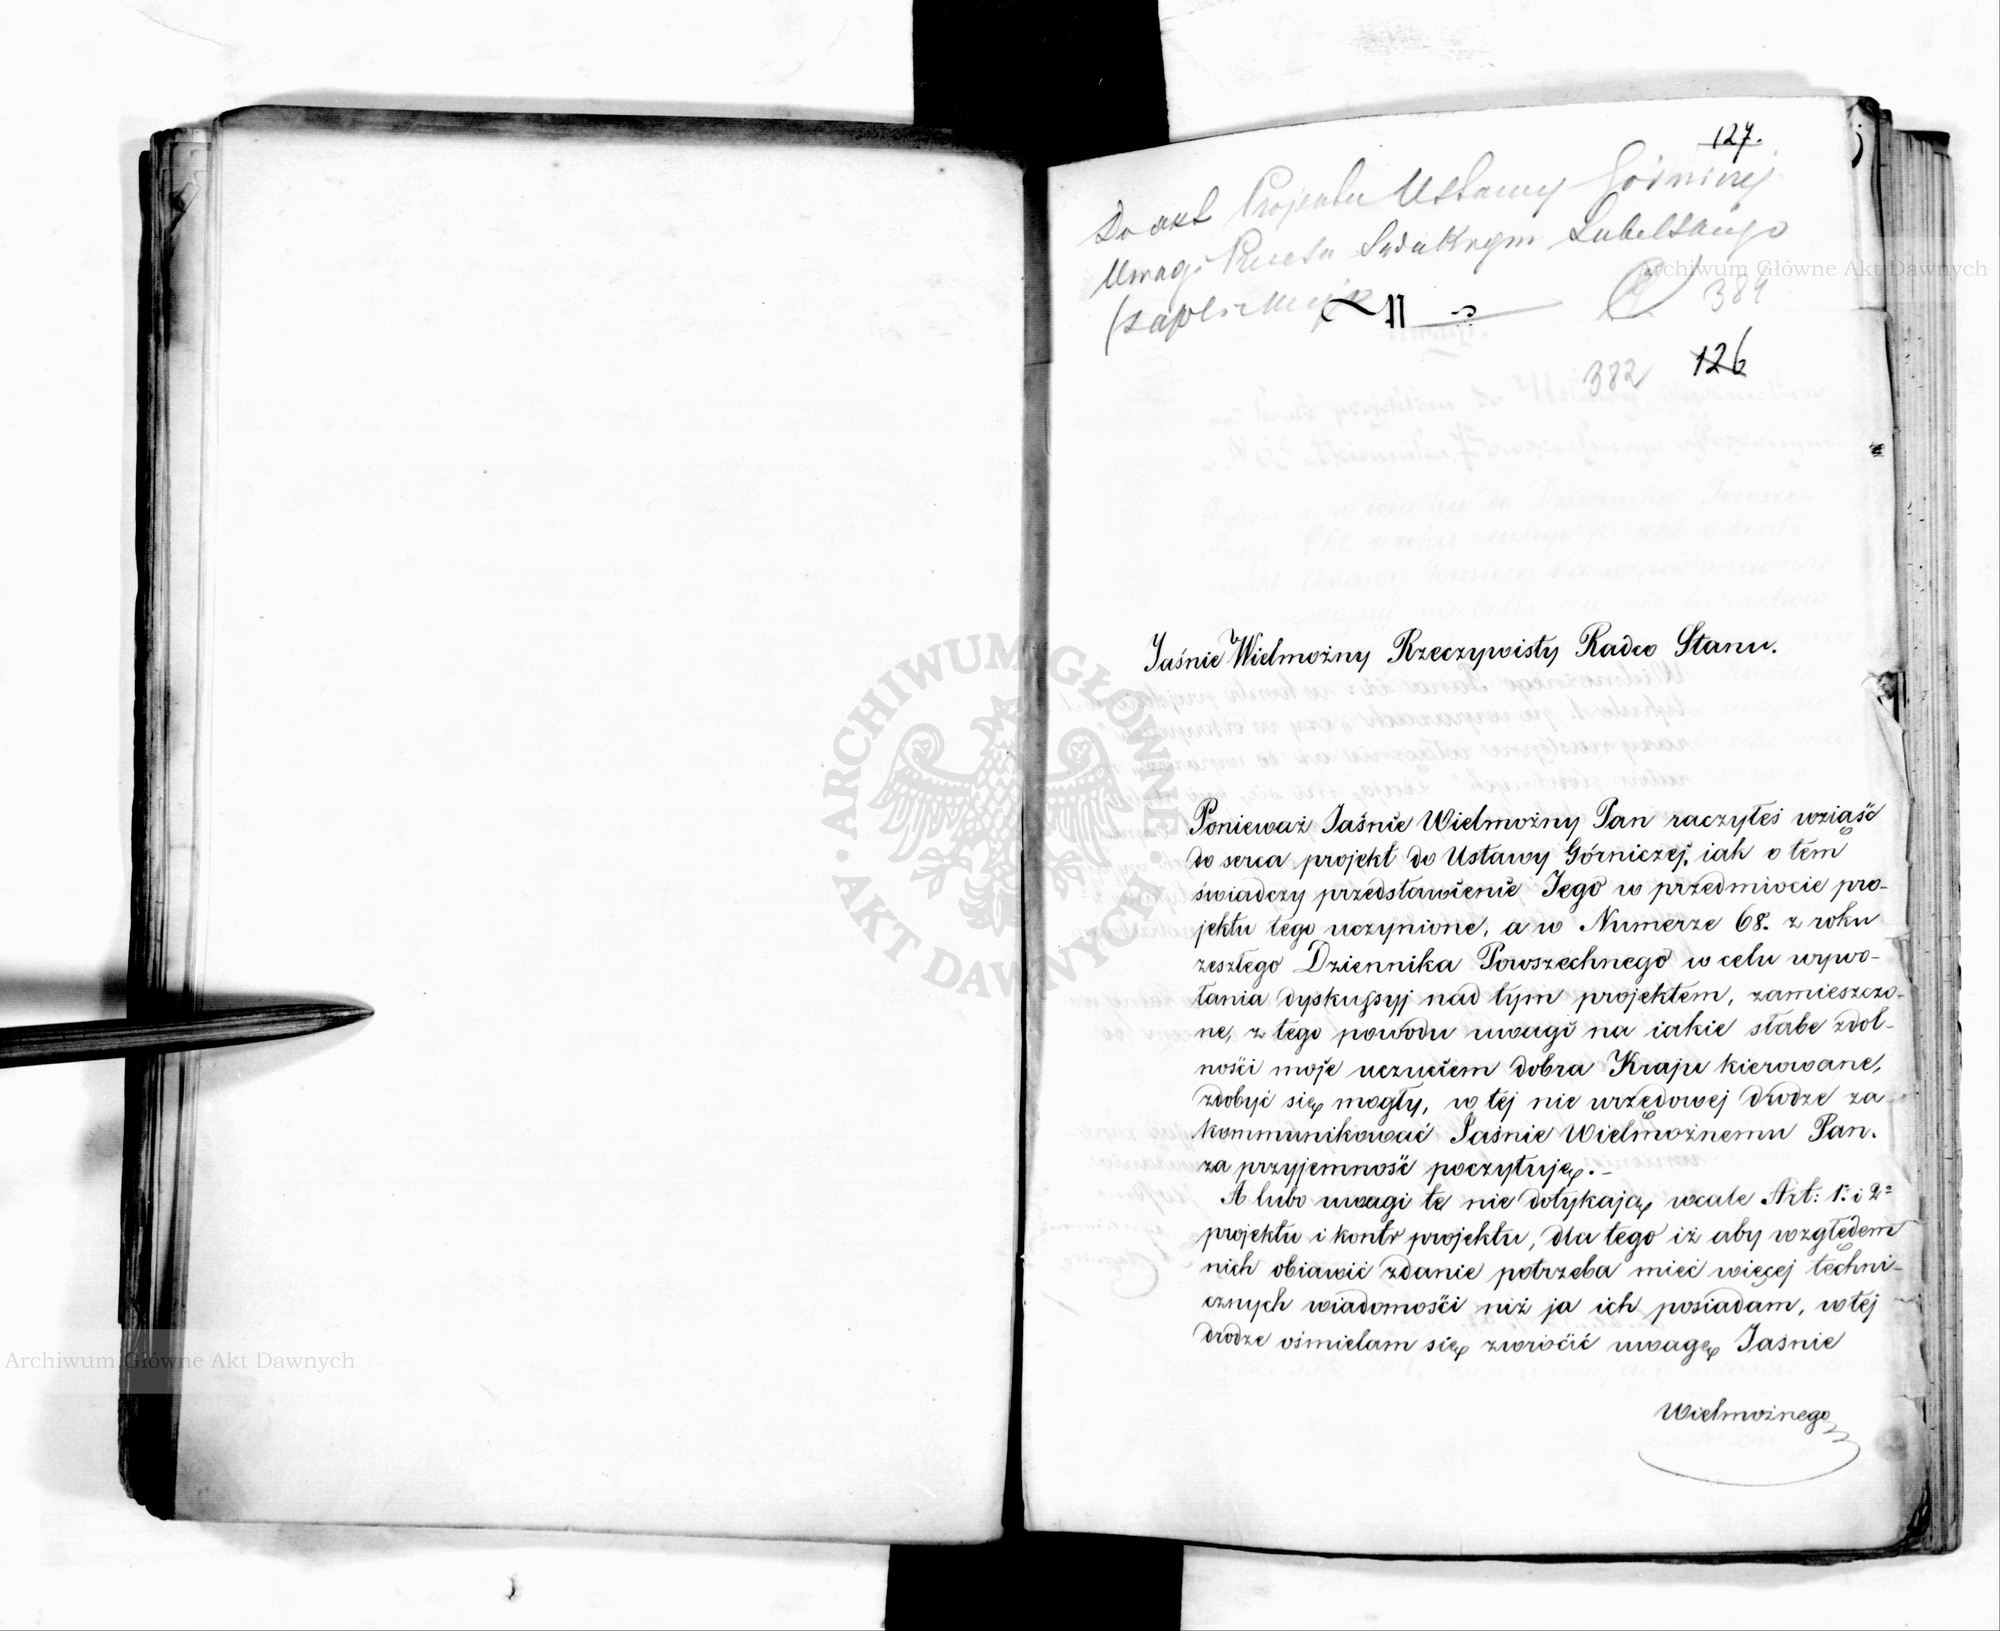 127.
Do akt Projektu Ustawy Górniczej
Uwagi Lubelskiego
384
382 126
Jaśnie Wielmożny Rzeczywisty Radco Stanu.
Ponieważ Jaśnie Wielmożny Pan raczyłeś wziąść
do serca projekt do Ustawy Górniczej, iak o tem
świadczy przedstawienie Jego w przedmiocie pro-
jektu tego uczynione, a w Numerze 68. z roku
zeszłego Dziennika Powszechnego w celu wywo-
łania dyskussyj nad tym projektem, zamieszczo-
ne, z tego powodu uwagi na iakie słabe zdol-
ności moje uczuciem dobra Kraju kierowane,
zdobyć się mogły, w téj nie urzędowej drodze za
kommunikować Jaśnie Wielmożnemu Pan.
za przyjemność poczytuję.-
A lubo uwagi te nie dotykają wcale Art: 1° i 2°
projektu i kontr projektu, dla tego iż aby względem
nich obiawić zdanie potrzeba mieć więcej techni-
cznych wiadomości niż ja ich posiadam, w tej
drodze ośmielam się zwrócić uwagę Jaśnie
Wielmożnego
Archiwum Główne Akt Dawnych
ARCHIWUM GŁÓWNE AKT DAWNYCH
Archiwum Główne Akt Dawnych